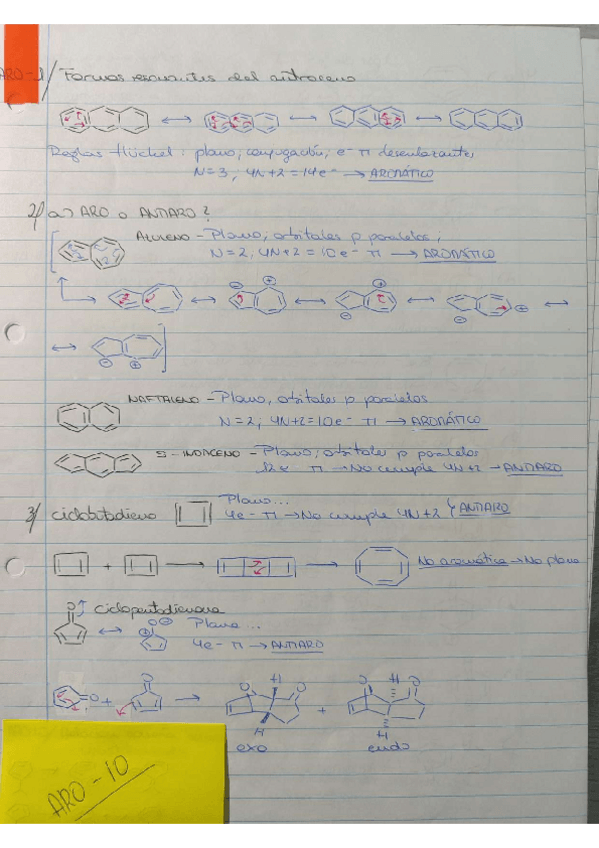 ARO-1/ Formas resonantes del antraceno
Reglas Hückel: plano, conjugación, e- π deslocalizados
N=3; 4N+2=14e- → AROMÁTICO
2/ a) ARO o ANTIARO?
AZULENO - Plano, orbitales p paralelos;
N=2, 4N+2=10e- π → AROMÁTICO
NAFTALENO - Plano, orbitales p paralelos
N=2; 4N+2=10e- π → AROMÁTICO
S-INDACENO - Plano, orbitales p paralelos
12e- π → No cumple 4N+2 → ANTIARO
3/ ciclobutadieno Plano...
4e- π → No cumple 4N+2 } ANTIARO
No aromático → No plano
ciclopentadienona
Plano...
4e- π → ANTIARO
exo
endo
ARO-10